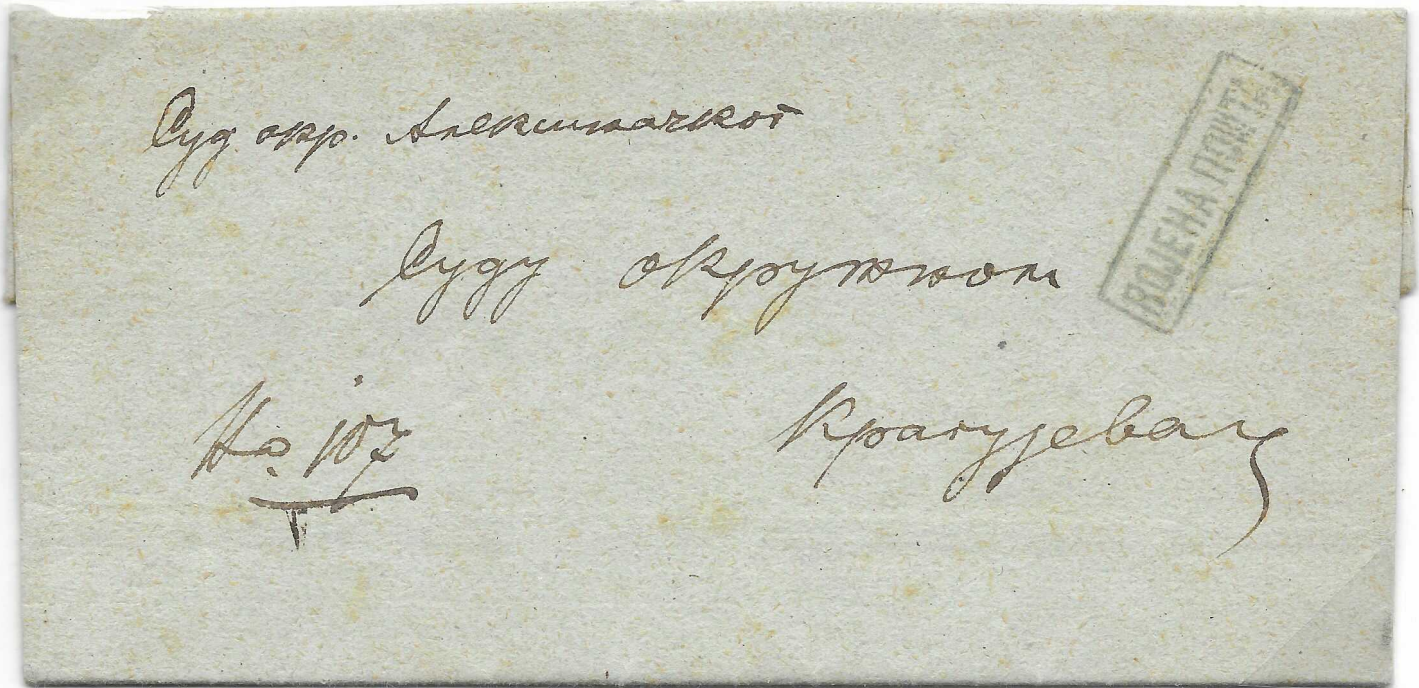 Суд окр. Алексиначког
ВОЈЕНА ПОШТА
Суду окружном
№ 107
Крагујевац